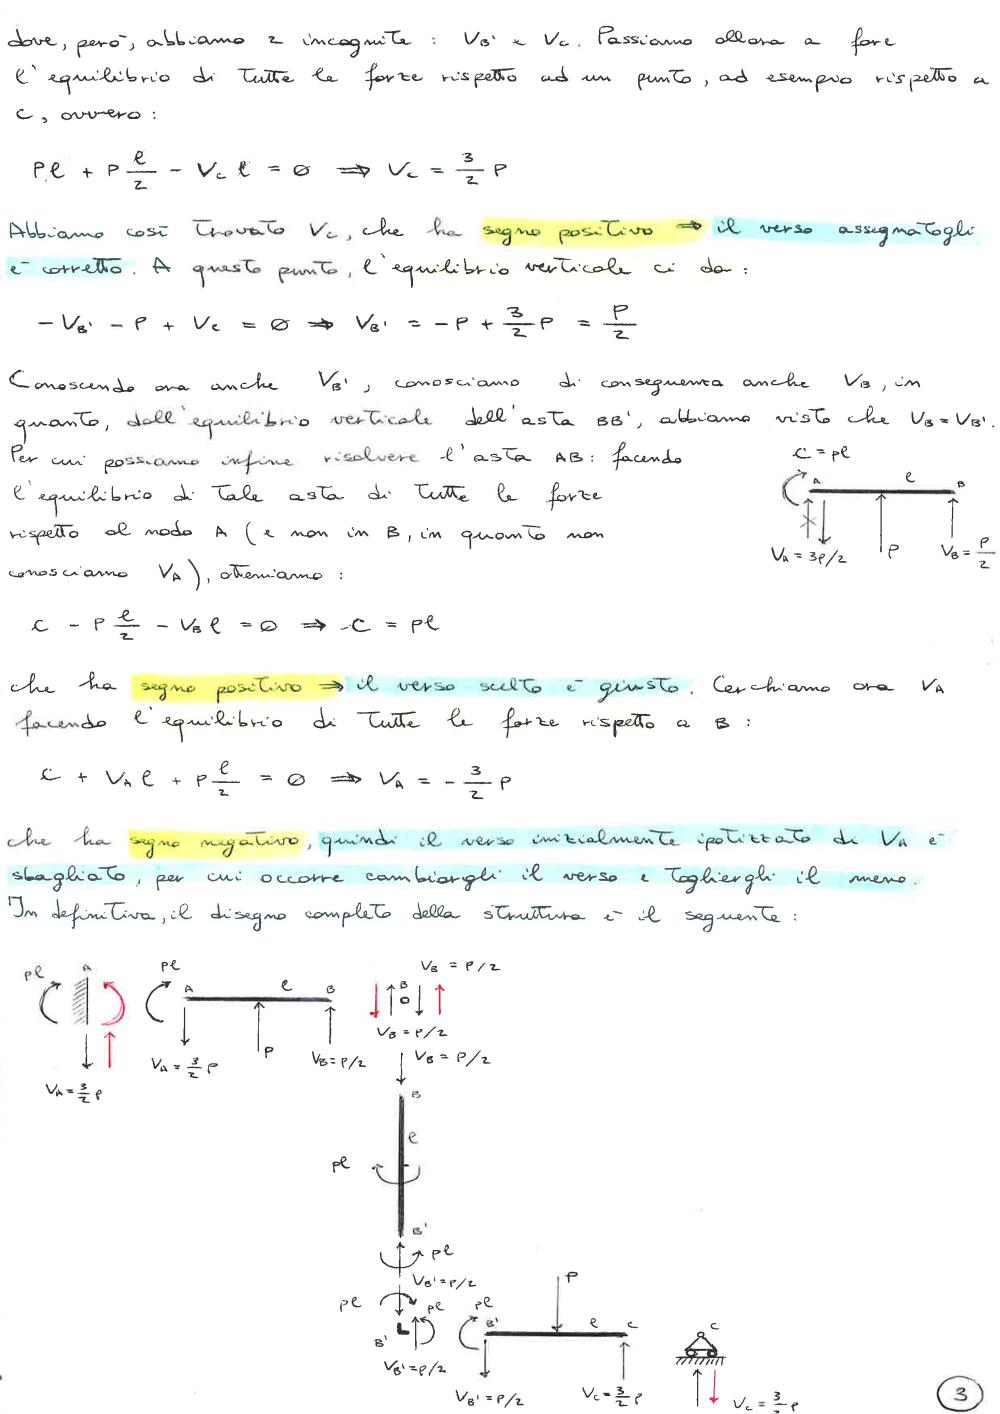 dove, però, abbiamo 2 incognite : VB' e Vc. Passiamo allora a fare
l'equilibrio di tutte le forze rispetto ad un punto, ad esempio rispetto a
C, ovvero :
Pl + P l/2 - Vc l = 0 ⇒ Vc = 3/2 P
Abbiamo così trovato Vc, che ha segno positivo ⇒ il verso assegnatogli
è corretto. A questo punto, l'equilibrio verticale ci da :
- VB' - P + Vc = 0 ⇒ VB' = -P + 3/2 P = P/2
Conoscendo ora anche VB', conosciamo di conseguenza anche VB, in
quanto, dall'equilibrio verticale dell'asta BB', abbiamo visto che VB = VB'.
Per cui possiamo infine risolvere l'asta AB : facendo
l'equilibrio di tale asta di tutte le forze
rispetto al nodo A (e non in B, in quanto non
conosciamo VA), otteniamo :
C = pl
A l B
VA = 3P/2 P VB = P/2
C - P l/2 - VB l = 0 ⇒ C = pl
che ha segno positivo ⇒ il verso scelto è giusto. Cerchiamo ora VA
facendo l'equilibrio di tutte le forze rispetto a B :
C + VA l + P l/2 = 0 ⇒ VA = - 3/2 P
che ha segno negativo, quindi il verso inizialmente ipotizzato di VA è
sbagliato, per cui occorre cambiargli il verso e toglierli il meno.
In definitiva, il disegno completo della struttura è il seguente :
pl A pl A l B VB = P/2
B
VB = P/2
VA = 3/2 P VA = 3/2 P P VB = P/2 VB = P/2
B
l
pl
B'
pl
VB' = P/2
pl pl B'
VB' = P/2
pl B' P l C
VB' = P/2 VC = 3/2 P
C
VC = 3/2 P
3